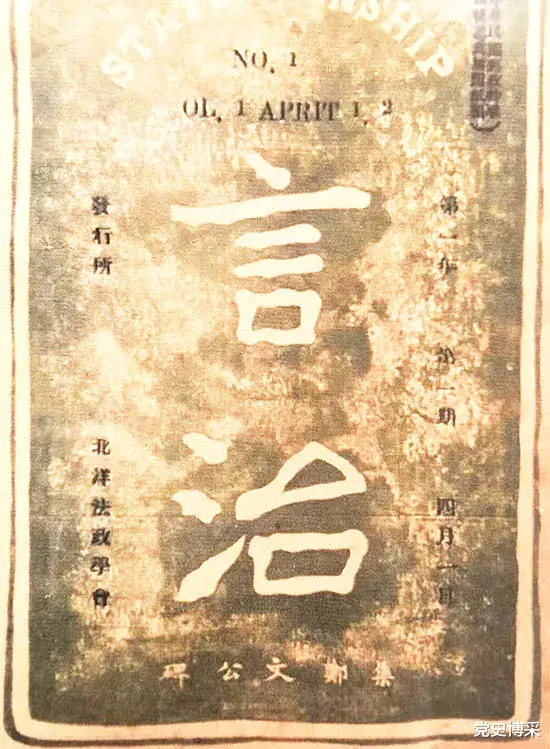 NO. 1
OL. 1 APRIT 1. 2
第一年 第一期 四月一日
言治
發行所 北洋法政學會
集鄭文公碑
党史博采